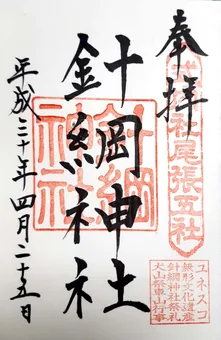 奉拝
式内社尾張五社
ユネスコ
無形文化遺産
針綱神社祭礼
犬山祭車山行事
針綱神社
針綱神社
平成三十年四月二十五日